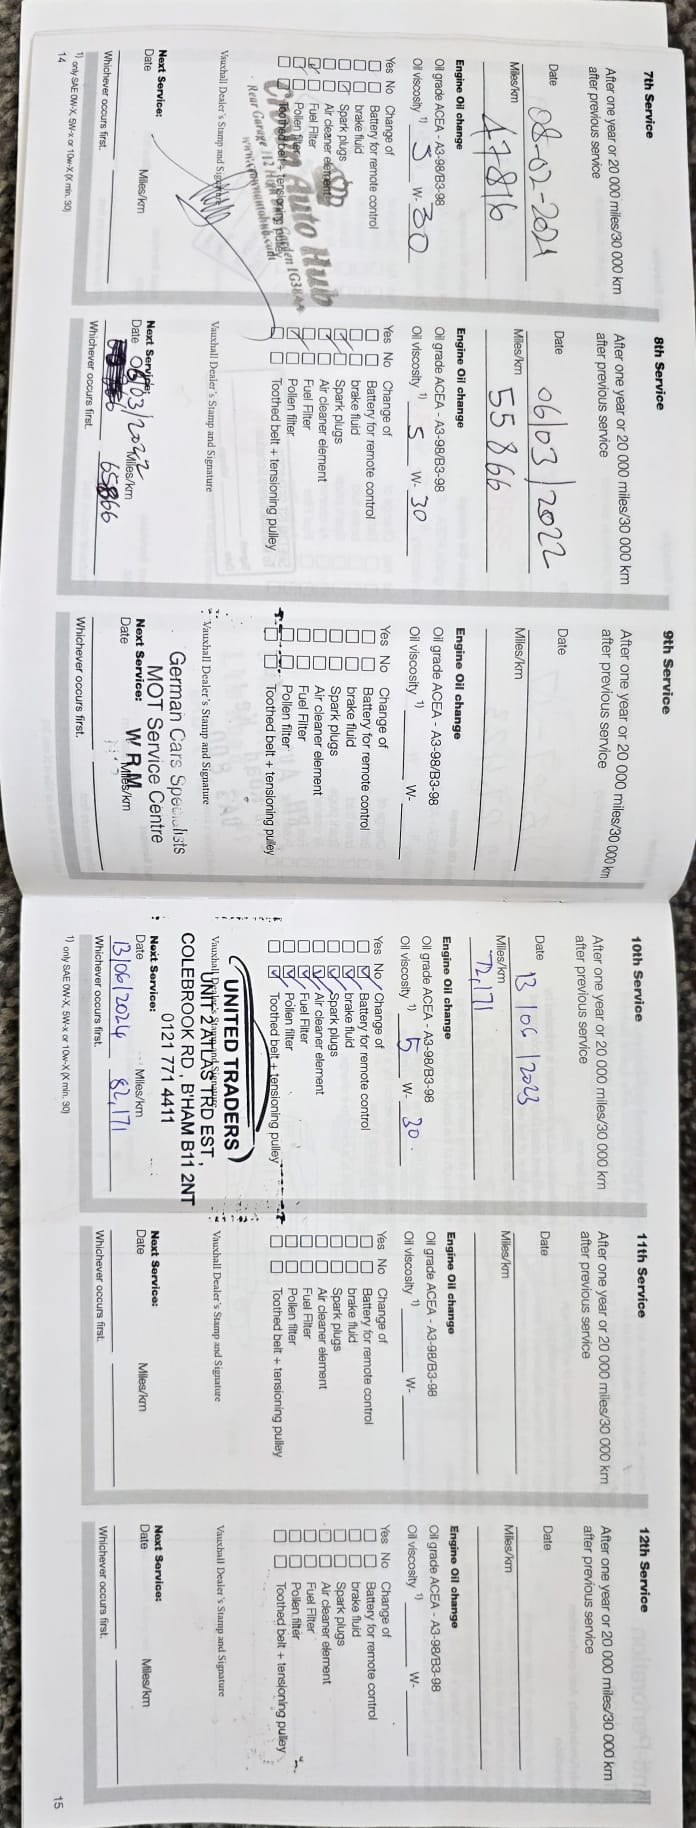 7th Service
After one year or 20 000 miles/30 000 km
after previous service
Date 08-02-2021
Miles/km 47816
Engine Oil change
Oil grade ACEA - A3-98/B3-98
Oil viscosity 1) 5 W- 30
Yes No Change of
Battery for remote control
brake fluid
Spark plugs
Air cleaner element
Fuel Filter
Pollen filter
Toothed belt + tensioning pulley
Auto Hub
Rear Garage 112 High
Vauxhall Dealer's Stamp and Signature
Next Service:
Date Miles/km
Whichever occurs first.
1) only SAE 0W-X, 5W-x or 10w-X (X min. 30)
14
8th Service
After one year or 20 000 miles/30 000 km
after previous service
Date 06/03/2022
Miles/km 55866
Engine Oil change
Oil grade ACEA - A3-98/B3-98
Oil viscosity 1) 5 W- 30
Yes No Change of
Battery for remote control
brake fluid
Spark plugs
Air cleaner element
Fuel Filter
Pollen filter
Toothed belt + tensioning pulley
Vauxhall Dealer's Stamp and Signature
Next Service:
Date 06/03/2022 Miles/km
65866
Whichever occurs first.
9th Service
After one year or 20 000 miles/30 000 km
after previous service
Date
Miles/km
Engine Oil change
Oil grade ACEA - A3-98/B3-98
Oil viscosity 1) W-
Yes No Change of
Battery for remote control
brake fluid
Spark plugs
Air cleaner element
Fuel Filter
Pollen filter
Toothed belt + tensioning pulley
Vauxhall Dealer's Stamp and Signature
German Cars Specialists
MOT Service Centre
W R M
Next Service:
Date Miles/km
Whichever occurs first.
10th Service
After one year or 20 000 miles/30 000 km
after previous service
Date 13/06/2023
Miles/km 72,171
Engine Oil change
Oil grade ACEA - A3-98/B3-98
Oil viscosity 1) 5 W- 30.
Yes No Change of
Battery for remote control
brake fluid
Spark plugs
Air cleaner element
Fuel Filter
Pollen filter
Toothed belt + tensioning pulley
UNITED TRADERS
Vauxhall Dealer's Stamp and Signature
UNIT 2 ATLAS TRD EST,
COLEBROOK RD, B'HAM B11 2NT
0121 771 4411
Next Service:
Date Miles/km
13/06/2024 82,171
Whichever occurs first.
1) only SAE 0W-X, 5W-x or 10w-X (X min. 30)
11th Service
After one year or 20 000 miles/30 000 km
after previous service
Date
Miles/km
Engine Oil change
Oil grade ACEA - A3-98/B3-98
Oil viscosity 1) W-
Yes No Change of
Battery for remote control
brake fluid
Spark plugs
Air cleaner element
Fuel Filter
Pollen filter
Toothed belt + tensioning pulley
Vauxhall Dealer's Stamp and Signature
Next Service:
Date Miles/km
Whichever occurs first.
12th Service
After one year or 20 000 miles/30 000 km
after previous service
Date
Miles/km
Engine Oil change
Oil grade ACEA - A3-98/B3-98
Oil viscosity 1) W-
Yes No Change of
Battery for remote control
brake fluid
Spark plugs
Air cleaner element
Fuel Filter
Pollen filter
Toothed belt + tensioning pulley
Vauxhall Dealer's Stamp and Signature
Next Service:
Date Miles/km
Whichever occurs first.
15